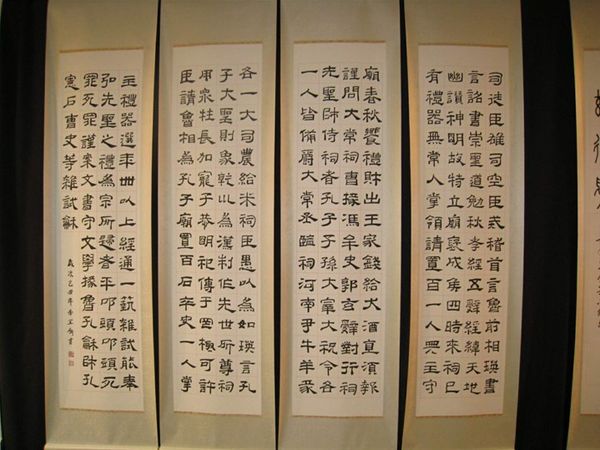 司徒臣雄司空臣戒稽首言魯前相瑛書
言詔書崇聖道勉秋孝經五辭經緯天地
幽讚神明故特立廟襃成侯四時來祠已
有禮器無常人掌領請置百一人典主守
廟春秋饗禮財出王家錢給犬酒直須報
謹問大常祠曹掾馮牟史郭玄辭對行祠
先聖師侍祠者孔子子孫大宰大祝令各
一人皆備爵大常丞監祠河南尹牛羊豕
各一大司農給米祠臣愚以為如瑛言孔
子大聖則象乾巛為漢制作先世所尊祠
用眾牲長加寵子恭明祀傳于罔極可許
臣請魯相為孔子廟置百石卒史一人掌
主禮器選年卅以上經通一藝雜試能奉
弘先聖之禮為宗所歸者平叩頭叩頭死
罪死罪謹案文書守文學掾魯孔龢師孔
憲戶曹史等雜試龢
歲次己丑年書